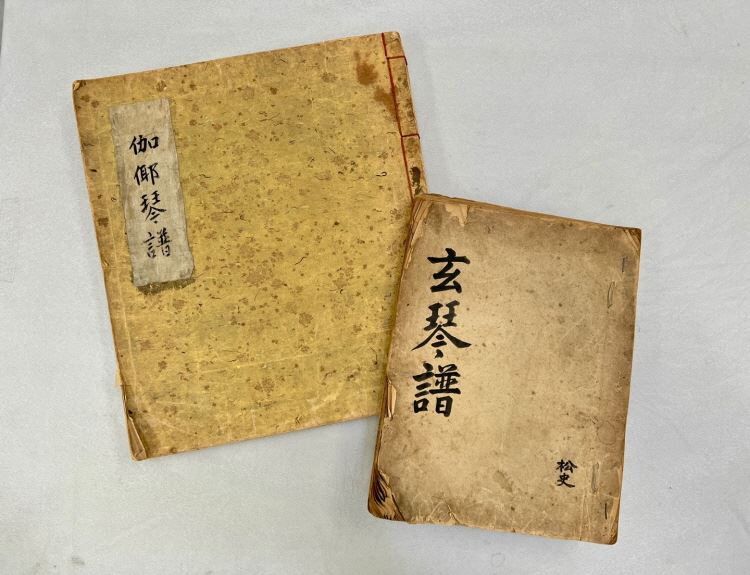 伽倻琴譜
玄琴譜
松史